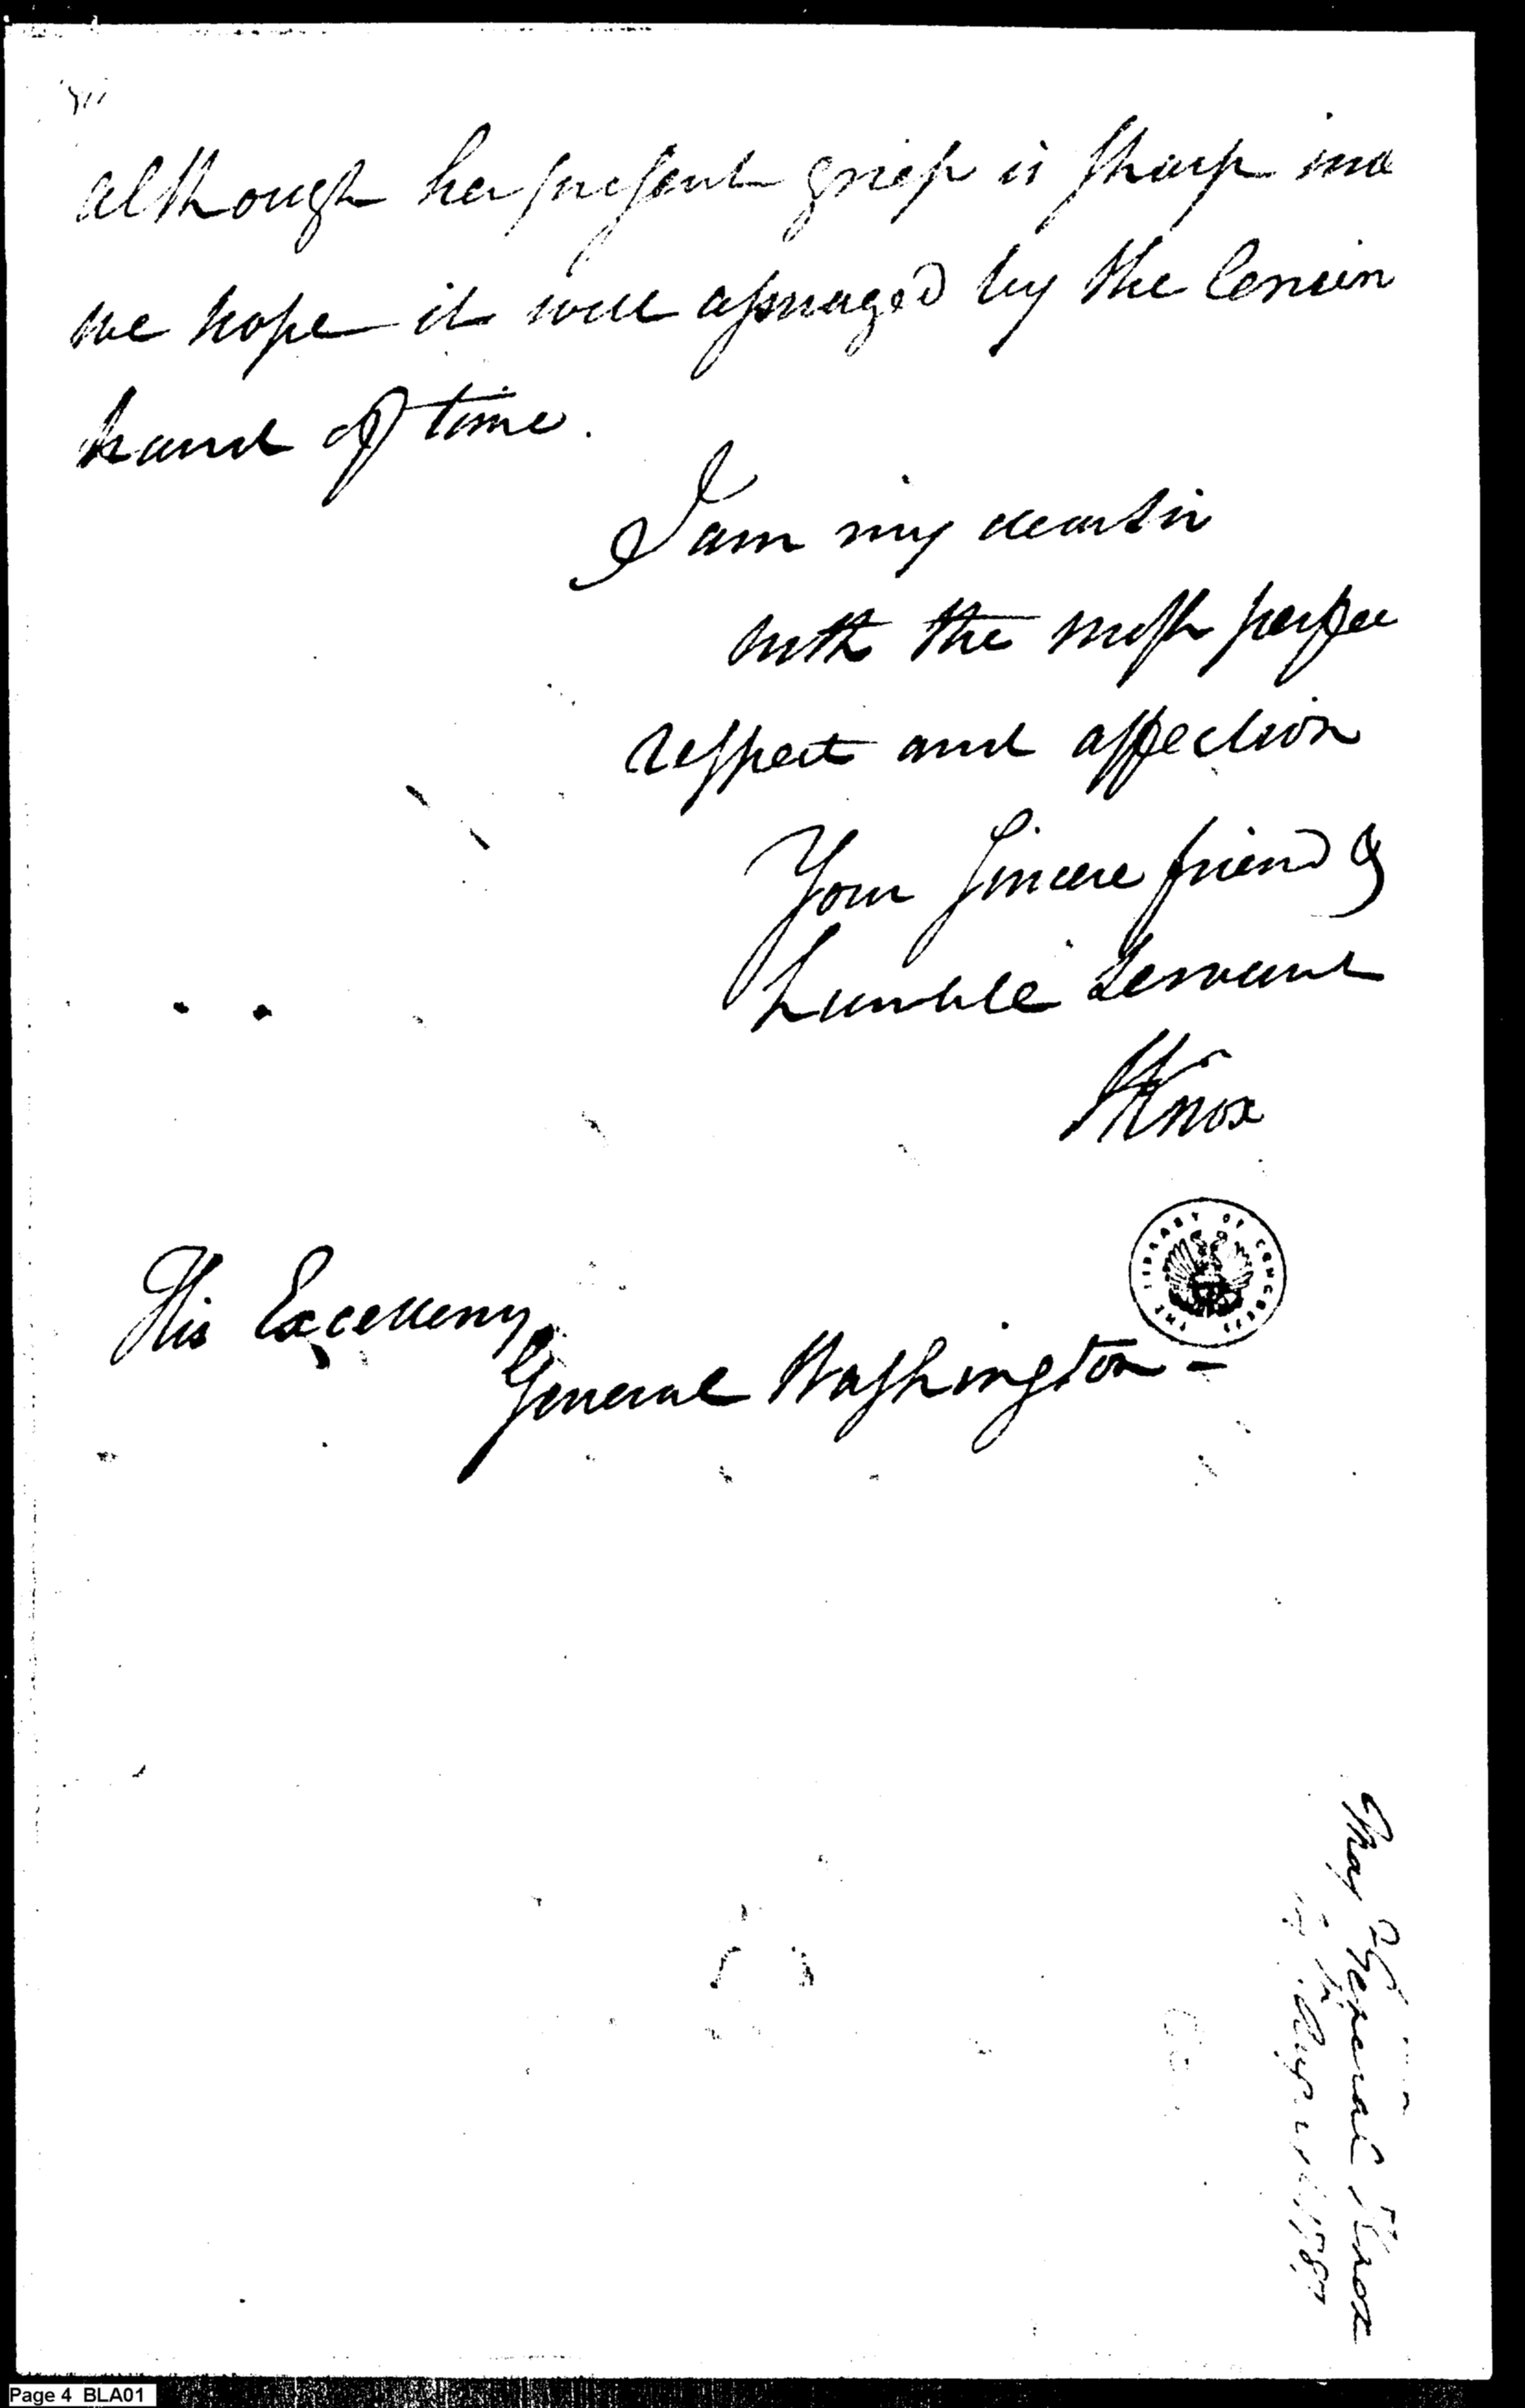 although her present grief is sharp ind
we hope it will assuaged by the lenien
hand of time.
I am my dear sir
with the most perfec
respect and affection
Your sincere friend &
humble servant
HKnox
His Excellency
General Washington -
THE LIBRARY OF CONGRESS
General Knox
Page 4 BLA01